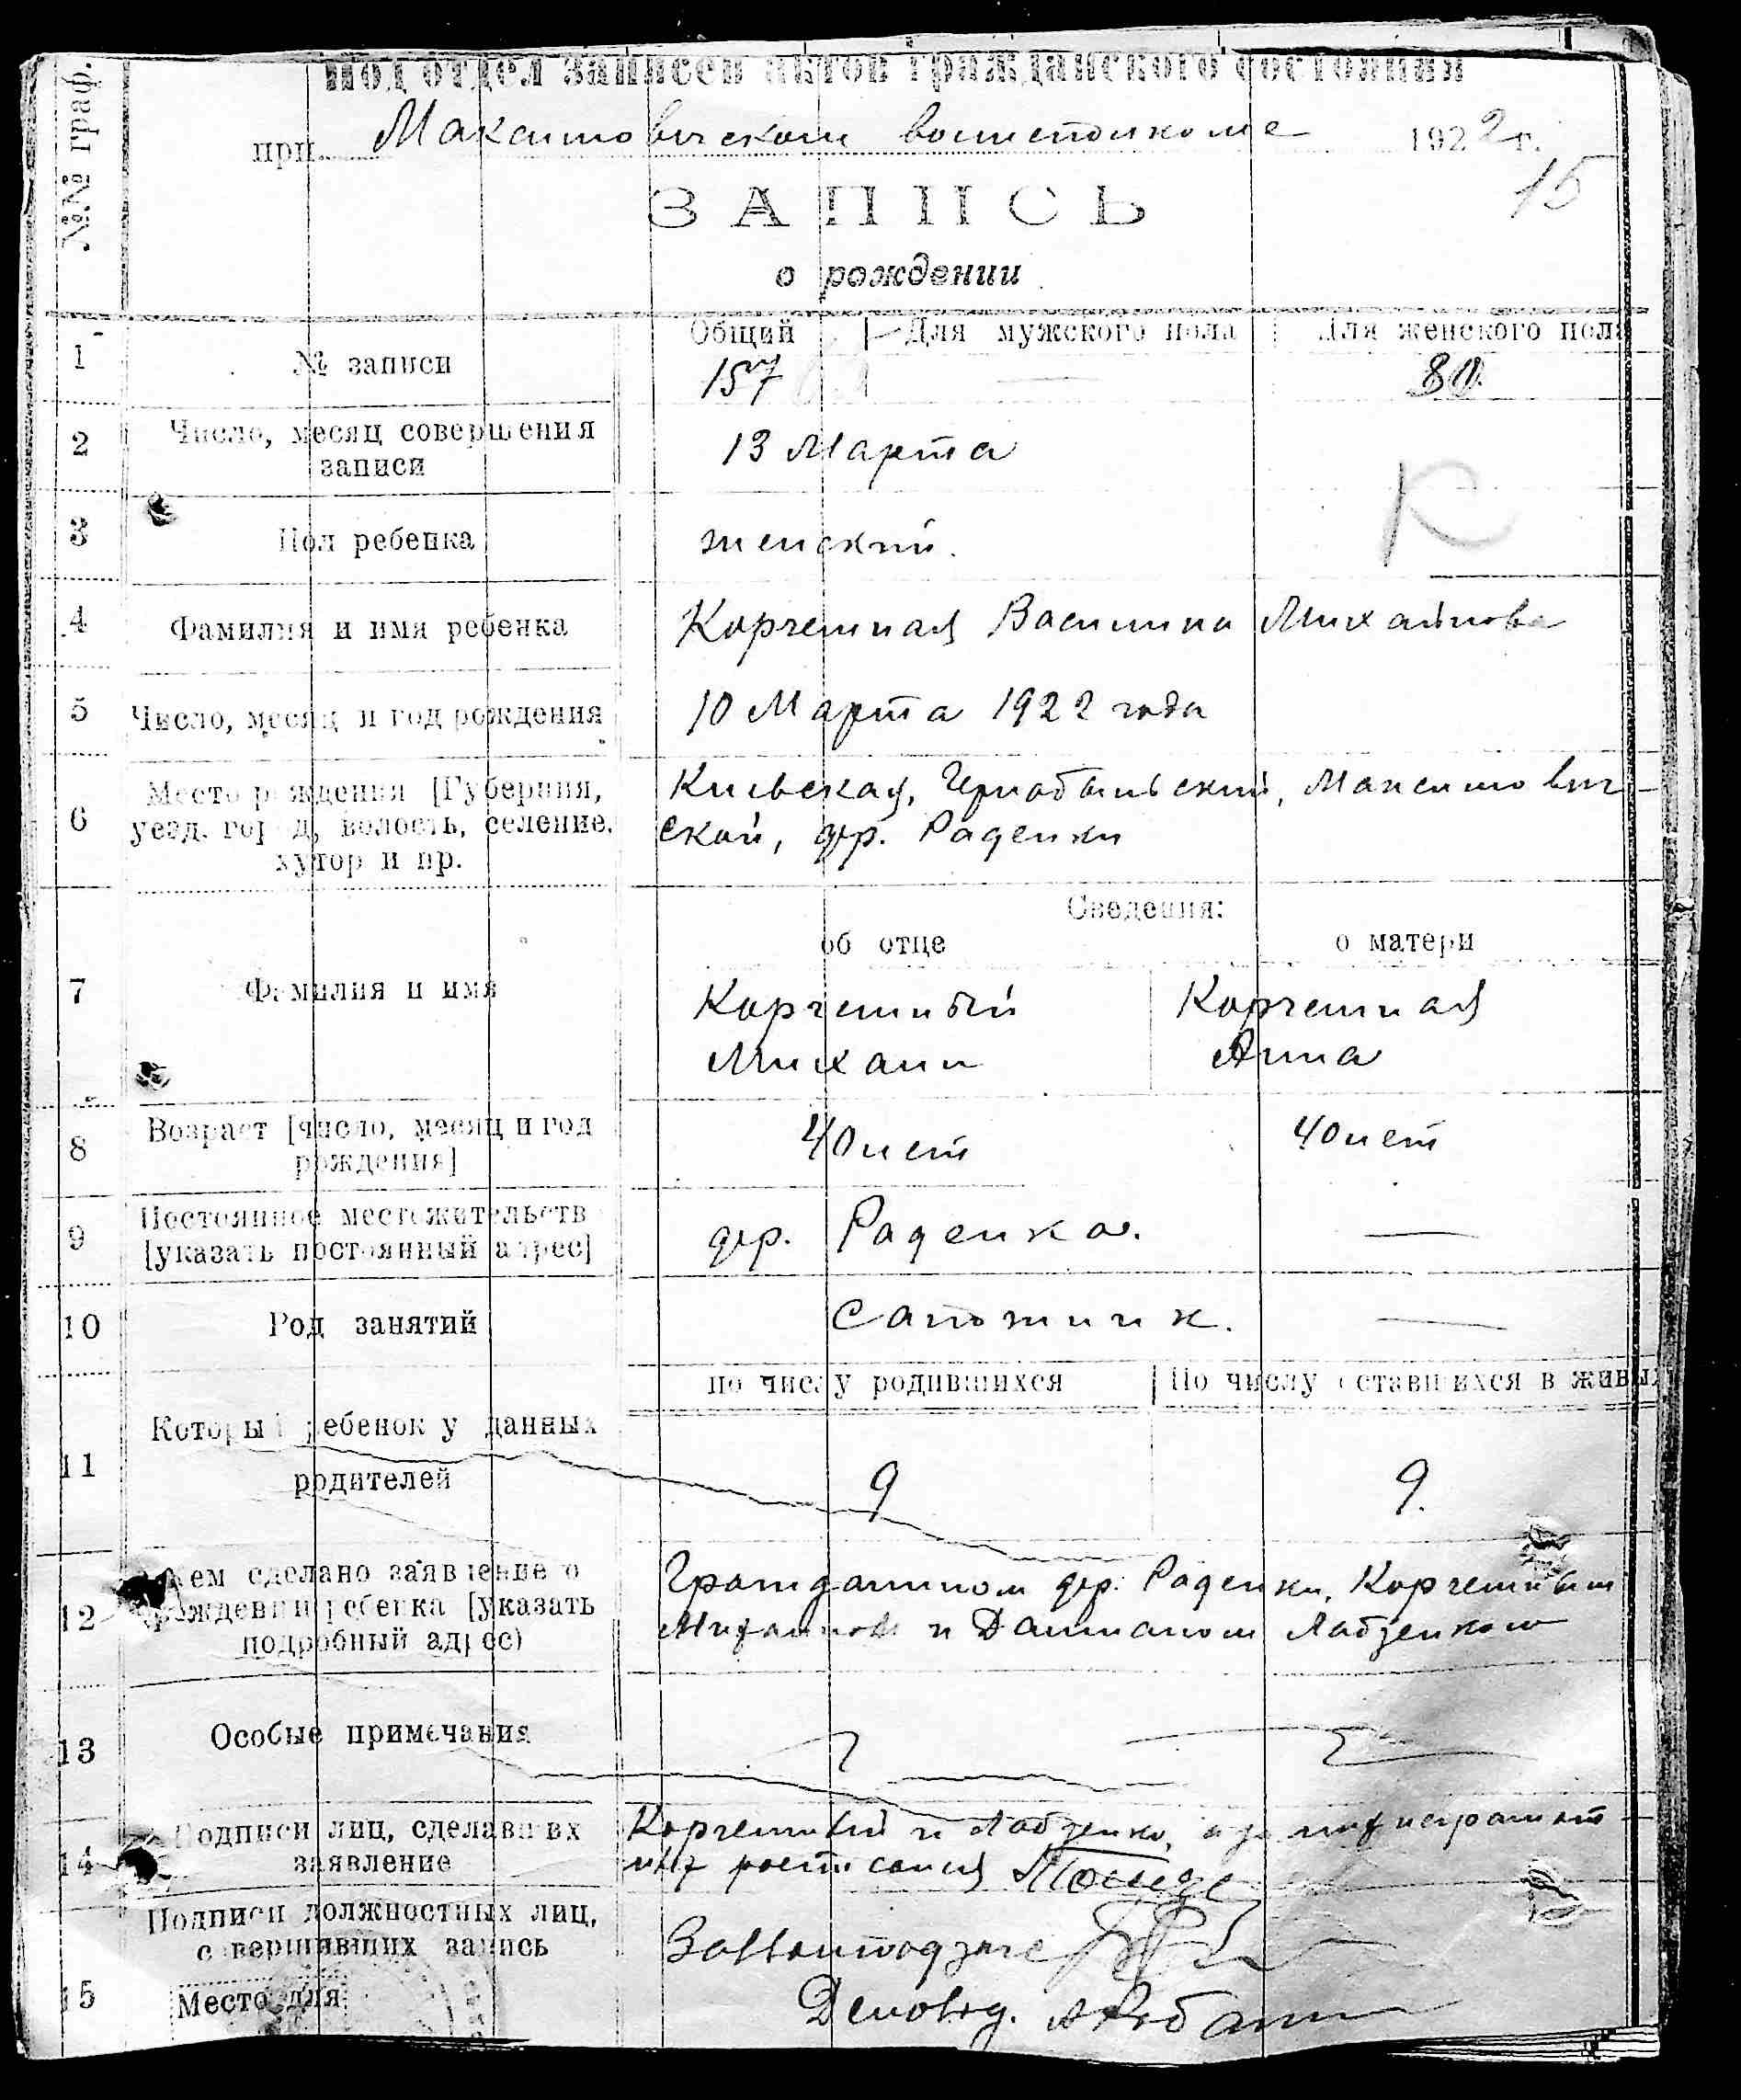 №№ граф.
Под отдел записей актов гражданского состояния
при Максимовическом волисполкоме 1922 г.
15
ЗАПИСЬ
о рождении
Общий Для мужского пола Для женского пола
1 № записи 157 — 80
2 Число, месяц совершения
записи
13 Марта
К
3 Пол ребенка женский.
4 Фамилия и имя ребенка Корчемная Василина Михайлова
5 Число, месяц и год рождения 10 Марта 1922 года
6 Место рождения [Губерния,
уезд. город, волость, селение,
хутор и пр.
Киевская, Чернобыльский, Максимович-
ской, дер. Раденки
Сведения:
об отце о матери
7 Фамилия и имя
Корчемный Корчемная
Михаил Анна
8 Возраст [число, месяц и год
рождения]
40 лет 40 лет
9 Постоянное местожительств
[указать постоянный адрес]
дер. Раденка. —
10 Род занятий Сапожник. —
по числу родившихся По числу оставшихся в живых
11 Который ребенок у данных
родителей
9 9.
12 Кем сделано заявление о
рождении ребенка [указать
подробный адрес)
Гражданином дер. Раденки, Корчемным
Михаилом и Дамианом Лабзенком
13 Особые примечания
14 Подписи лиц, сделавших
заявление
Корчемный и Лабзенко, а за
их росписался
15 Подписи должностных лиц,
совершивших запись
Делов.
Место для